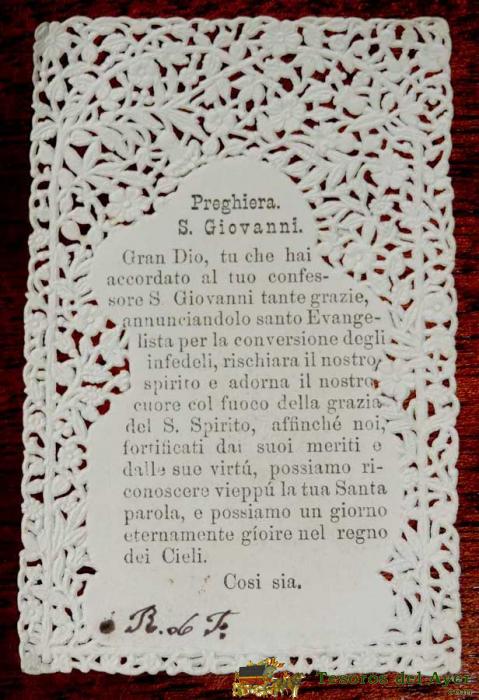 Preghiera.
S. Giovanni.
Gran Dio, tu che hai
accordato al tuo confes-
sore S. Giovanni tante grazie,
annunciandolo santo Evange-
lista per la conversione degli
infedeli, rischiara il nostro
spirito e adorna il nostro
cuore col fuoco della grazia
del S. Spirito, affinché noi,
fortificati dai suoi meriti e
dalle sue virtú, possiamo ri-
conoscere vieppú la tua Santa
parola, e possiamo un giorno
eternamente gíoire nel regno
dei Cieli.
Cosi sia.
R. d F.
Tesoros del Ayer
.com